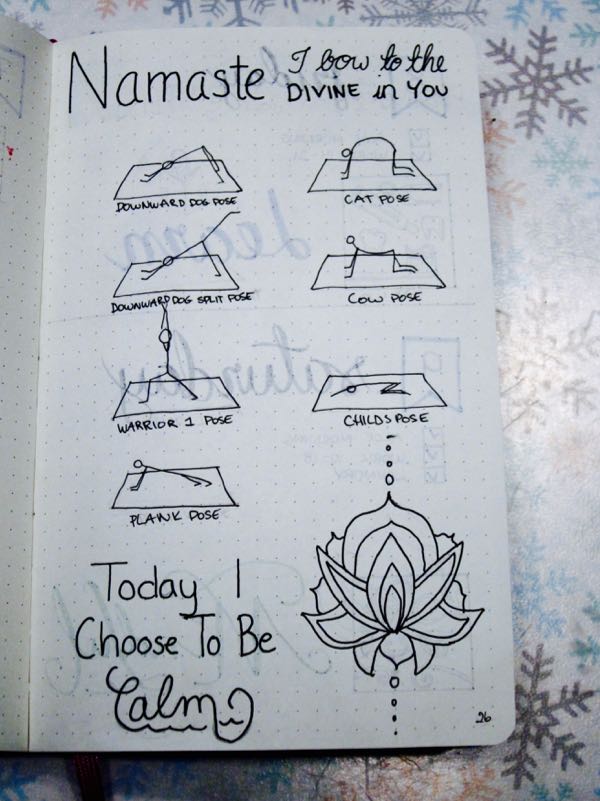 Namaste
I bow to the
DIVINE in YOU
DOWNWARD DOG POSE
CAT POSE
DOWNWARD DOG SPLIT POSE
COW POSE
WARRIOR 1 POSE
CHILDS POSE
PLANK POSE
Today I
Choose To Be
Calm
26
learn
saturday